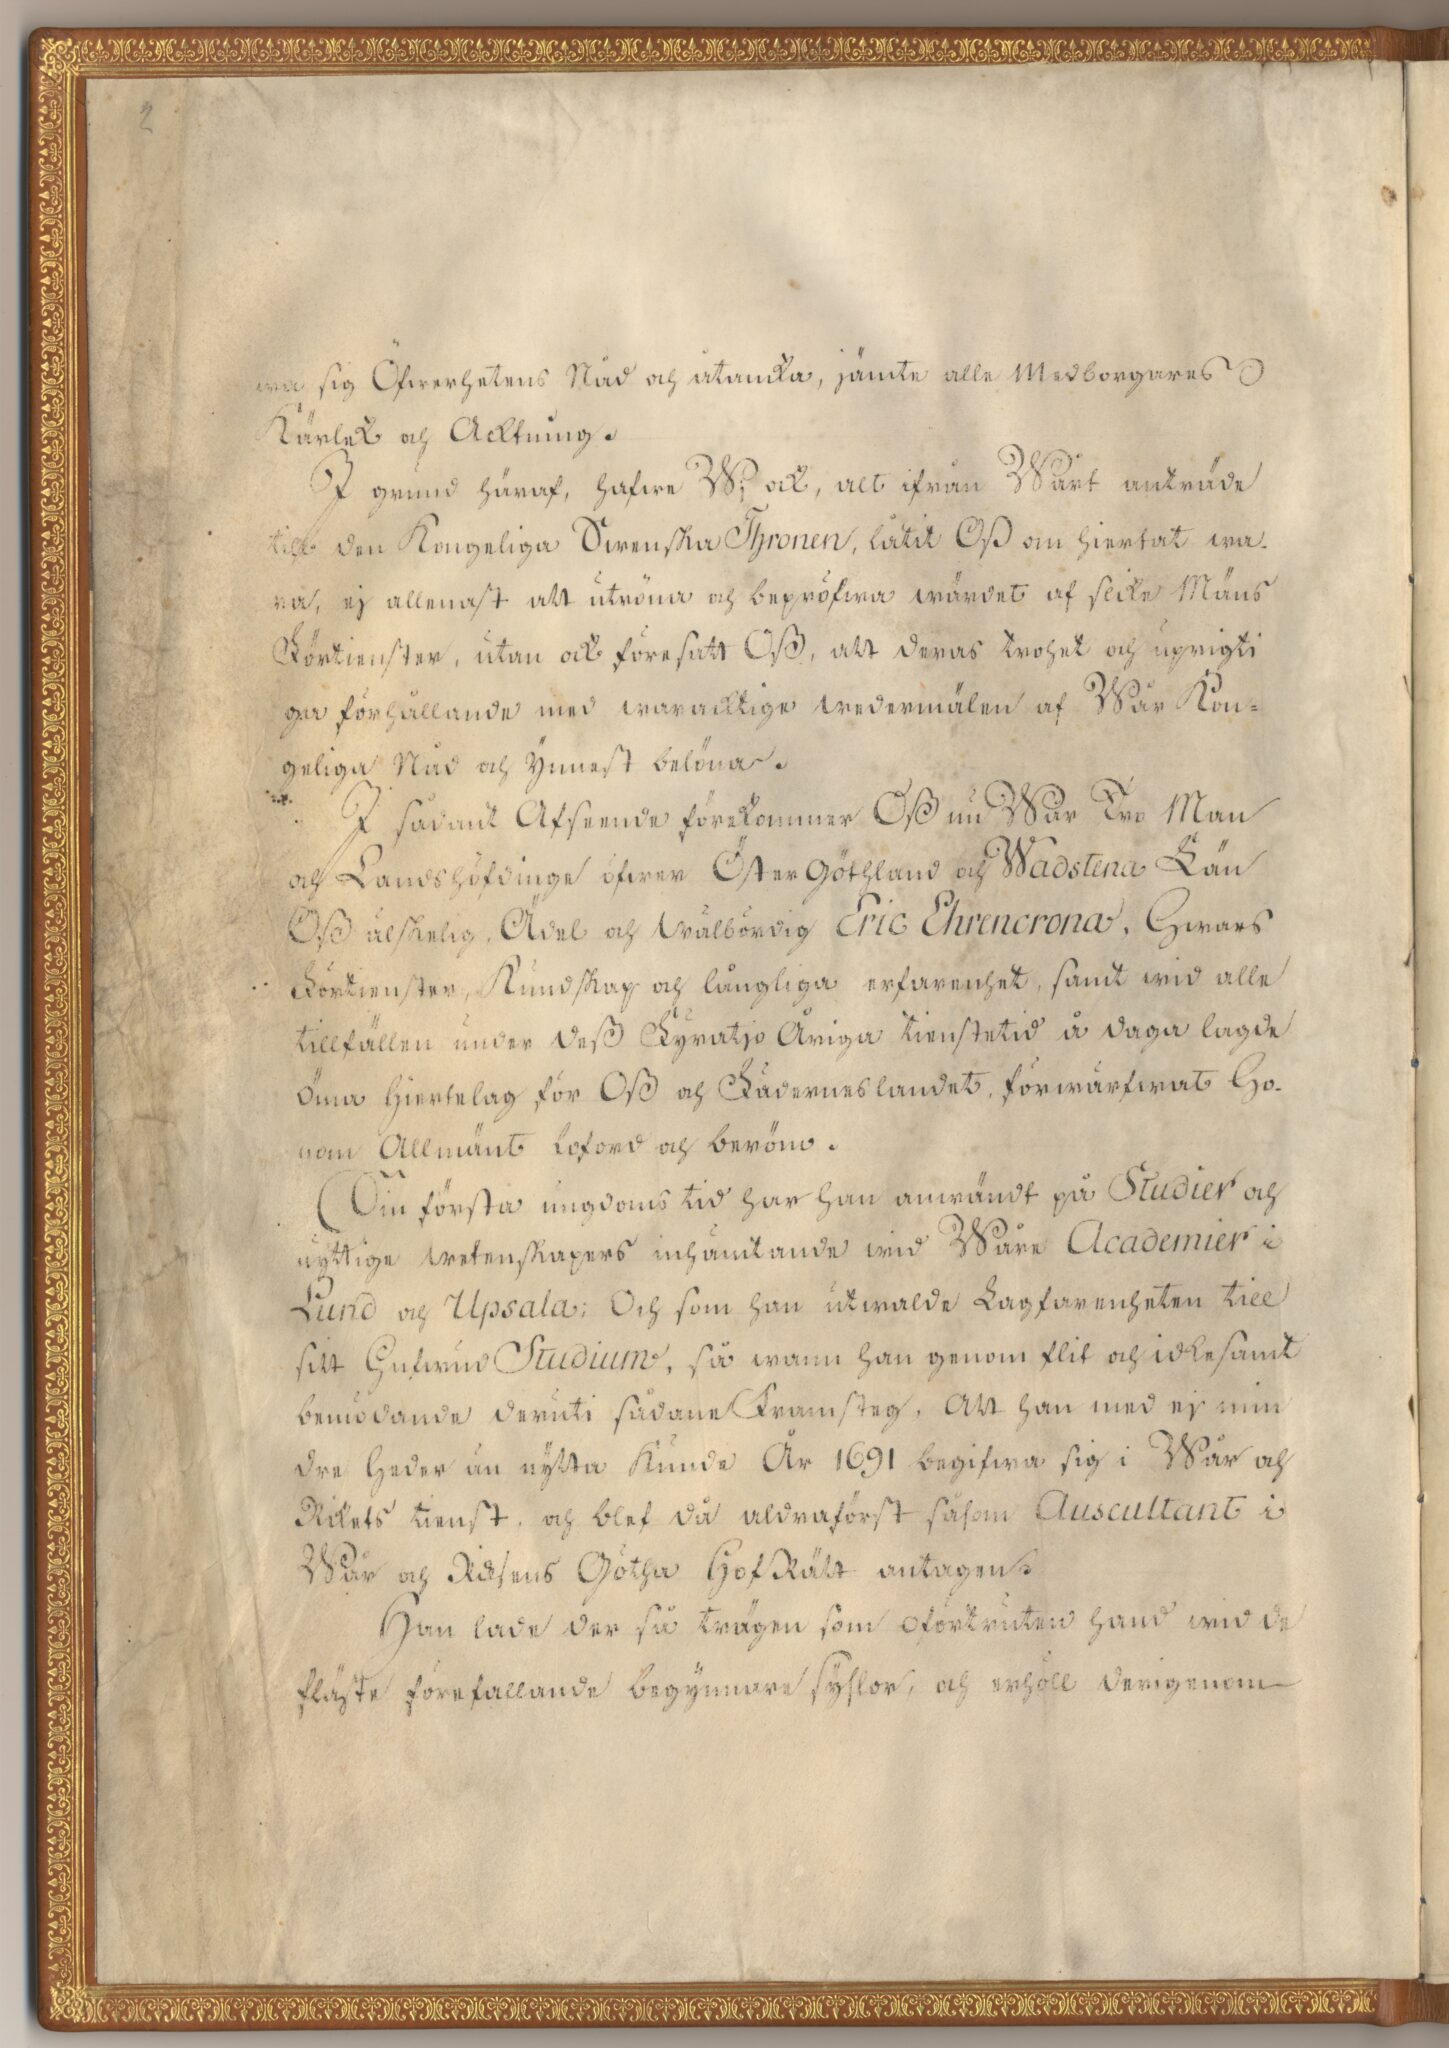 2
wa sig Öfwerhetens Nåd och åtancka, jämte alle Medborgares
Kärlek och Acktning.
I grund häraf, hafwe Wj ock, alt ifrån Wårt anträde
till den Kongeliga Swenska Thronen, låtit Oß om hiertat wa-
ra, ej allenast att utröna och bepröfwa wärdet af slike Mäns
Förtienster, utan ock föresatt Oß, att deras trohet och uprigti
ga förhållande med waracktige wedermälen af Wår Kon-
geliga Nåd och Ynnest belöna.
I sådant Afseende förekommer Oß nu Wår Tro Man
och Landshöfdinge öfwer Öster Göthland och Wadstena Län
Oß älskelig, Ädel och Wälbördig Eric Ehrencrona, Hwars
Förtienster, Kundskap och långliga erfarenhet, samt wid alle
tillfällen under deß Fyratjo Åriga tienstetid å daga lagde
öma Hiertelag för Oß och Fäderneslandet, förwärfwat Ho-
nom Allmänt Loford och beröm.
Sin första ungdoms tid har han anwändt på Studier och
nyttige wetenskapers inhämtande wid Wåre Academier i
Lund och Upsala; Och som han utwalde Lagfarenheten till
sitt Hufwud Studium, så wann han genom flit och idkesamt
bemödande deruti sådane Framsteg, Att han med ej min
dre Heder än nytta kunde År 1691 begifwa sig i Wår och
Rikets tienst, och blef då aldraförst såsom Auscultant i
Wår och Riksens Götha HofRätt antagen.
Han lade der så trägen som oförtruten hand wid de
fläste förefallande begynnare syslor, och erhöll derigenom